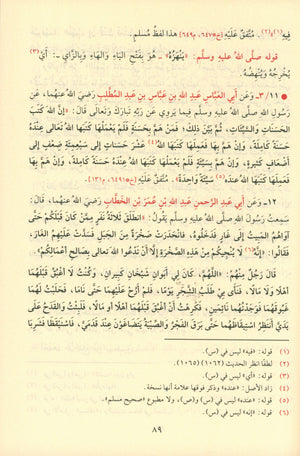 فِيهِ(١)،(٢). مُتَّفَقٌ عَلَيْهِ [خ٦٤٧، م٦٤٩] هذا لفظُ مُسلِمٍ.
قوله صلَّى اللهُ عليهِ وسلَّم: «يَنْهَزُهُ» ـ هوَ بِفَتْحِ اليَاءِ وَالهَاءِ وَبِالزَّايِ ـ: أَيْ(٣)
يُخْرِجُهُ وَيُنْهِضُهُ.
١١/ ٣ـ وَعَن أبي العبَّاسِ عبدِ اللهِ بنِ عبَّاسِ بنِ عبدِ المُطَّلِبِ رَضِيَ اللهُ عَنْهُما، عَن
رَسُولِ اللهِ صلَّى اللهُ عليهِ وسلَّم فِيمَا يَروِي عَن رَبِّهِ تَبَارَكَ وَتَعَالَى قَالَ: «إِنَّ اللهَ كَتَبَ
الحَسَنَاتِ وَالسَّيِّئَاتِ، ثُمَّ بَيَّنَ ذلِكَ، فَمَنْ هَمَّ بِحَسَنَةٍ فَلَمْ يَعْمَلْهَا كَتَبَهَا اللهُ تَعَالَى عِنْدَهُ
حَسَنَةً كَامِلَةً، وَإِنْ هَمَّ بِهَا فَعَمِلَهَا كَتَبَهَا اللهُ(٤) عَشْرَ حَسَنَاتٍ إِلَى سَبْعِمِئَةِ ضِعْفٍ إِلَى
أَضْعَافٍ كَثِيرَةٍ، وَإِنْ هَمَّ بِسَيِّئَةٍ فَلَمْ يَعْمَلْهَا كَتَبَهَا اللهُ عِنْدَهُ حَسَنَةً كَامِلَةً، وَإِنْ هَمَّ بِهَا
فَعَمِلَهَا كَتَبَهَا اللهُ عندَه(٥) سَيِّئَةً وَاحِدَةً». مُتَّفَقٌ عَلَيْهِ [خ٦٤٩١، م١٣١].
١٢ـ وَعَن أبي عبدِ الرَّحمنِ عبدِ اللهِ بنِ عُمَرَ بْنِ الخَطَّابِ رَضِيَ اللهُ عَنْهُمَا، قَالَ:
سَمِعتُ رَسُولَ اللهِ صلَّى اللهُ عليهِ وسلَّم يَقُولُ: «انطَلَقَ ثَلَاثَةُ نَفَرٍ مِمَّنْ كَانَ قَبْلَكُمْ حَتَّى
آوَاهُمُ المَبِيتُ إِلَى غَارٍ فَدَخَلُوهُ، فَانْحَدَرَتْ صَخْرَةٌ مِنَ الجَبَلِ فَسَدَّتْ عَلَيْهِمُ الغَارَ،
فَقَالُوا: إِنَّهُ(٦) لَا يُنْجِيكُمْ مِنْ هَذِهِ الصَّخْرَةِ إِلَّا أَنْ تَدْعُوا اللهَ تعالى بِصَالِحِ أَعْمَالِكُمْ.
قَالَ رَجُلٌ مِنْهُمْ: «اللَّهُمَّ، كَانَ لِي أَبَوَانِ شَيْخَانِ كَبِيرَانِ، وَكُنْتُ لَا أَغْبِقُ قَبْلَهُمَا
أَهْلًا وَلَا مَالًا، فَنَأَى بِي طَلَبُ الشَّجَرِ يَوْمًا، فَلَمْ أَرُحْ عَلَيْهِمَا حَتَّى نَامَا، فَحَلَبْتُ لَهُمَا
غَبُوقَهُمَا فَوَجَدْتُهُمَا نَائِمَيْنِ، فَكَرِهْتُ أَنْ أَغْبِقَ قَبْلَهُمَا أَهْلًا أَو مَالًا، فَلَبِثْتُ وَالقَدَحُ عَلَى
يَدَيَّ أَنْتَظِرُ اسْتِيقَاظَهُمَا حَتَّى بَرَقَ الفَجْرُ وَالصِّبْيَةُ يَتَضَاغَوْنَ عِنْدَ قَدَمَيَّ، فَاسْتَيْقَظَا فَشَرِبَا
(١) قوله: «فيه» ليس في (س).
(٢) لطفًا انظر الحديث (١٠٦٢) (١٠٦٥).
(٣) قوله: «أي» ليس في (س).
(٤) زاد الأصل: «عنده» وذكر فوقها علامة أنها نسخة.
(٥) قوله: «عنده» ليس في (س) و(ص)، ولا مطبوع «صحيح مسلم».
(٦) قوله: «إنه» ليس في (س).
٨٩